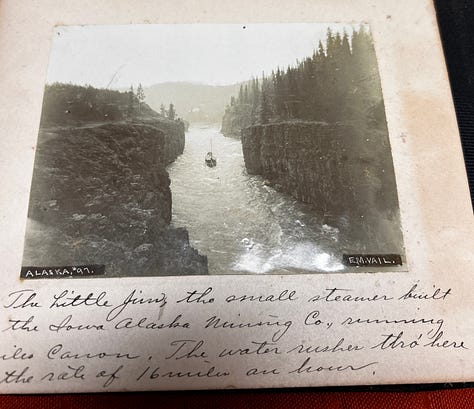 ALASKA, '97.
E.M. VAIL.
The Little Jim, the small steamer built
the Iowa Alaska Mining Co., running
iles Canon. The water rushes thro' here
the rate of 16 miles an hour.